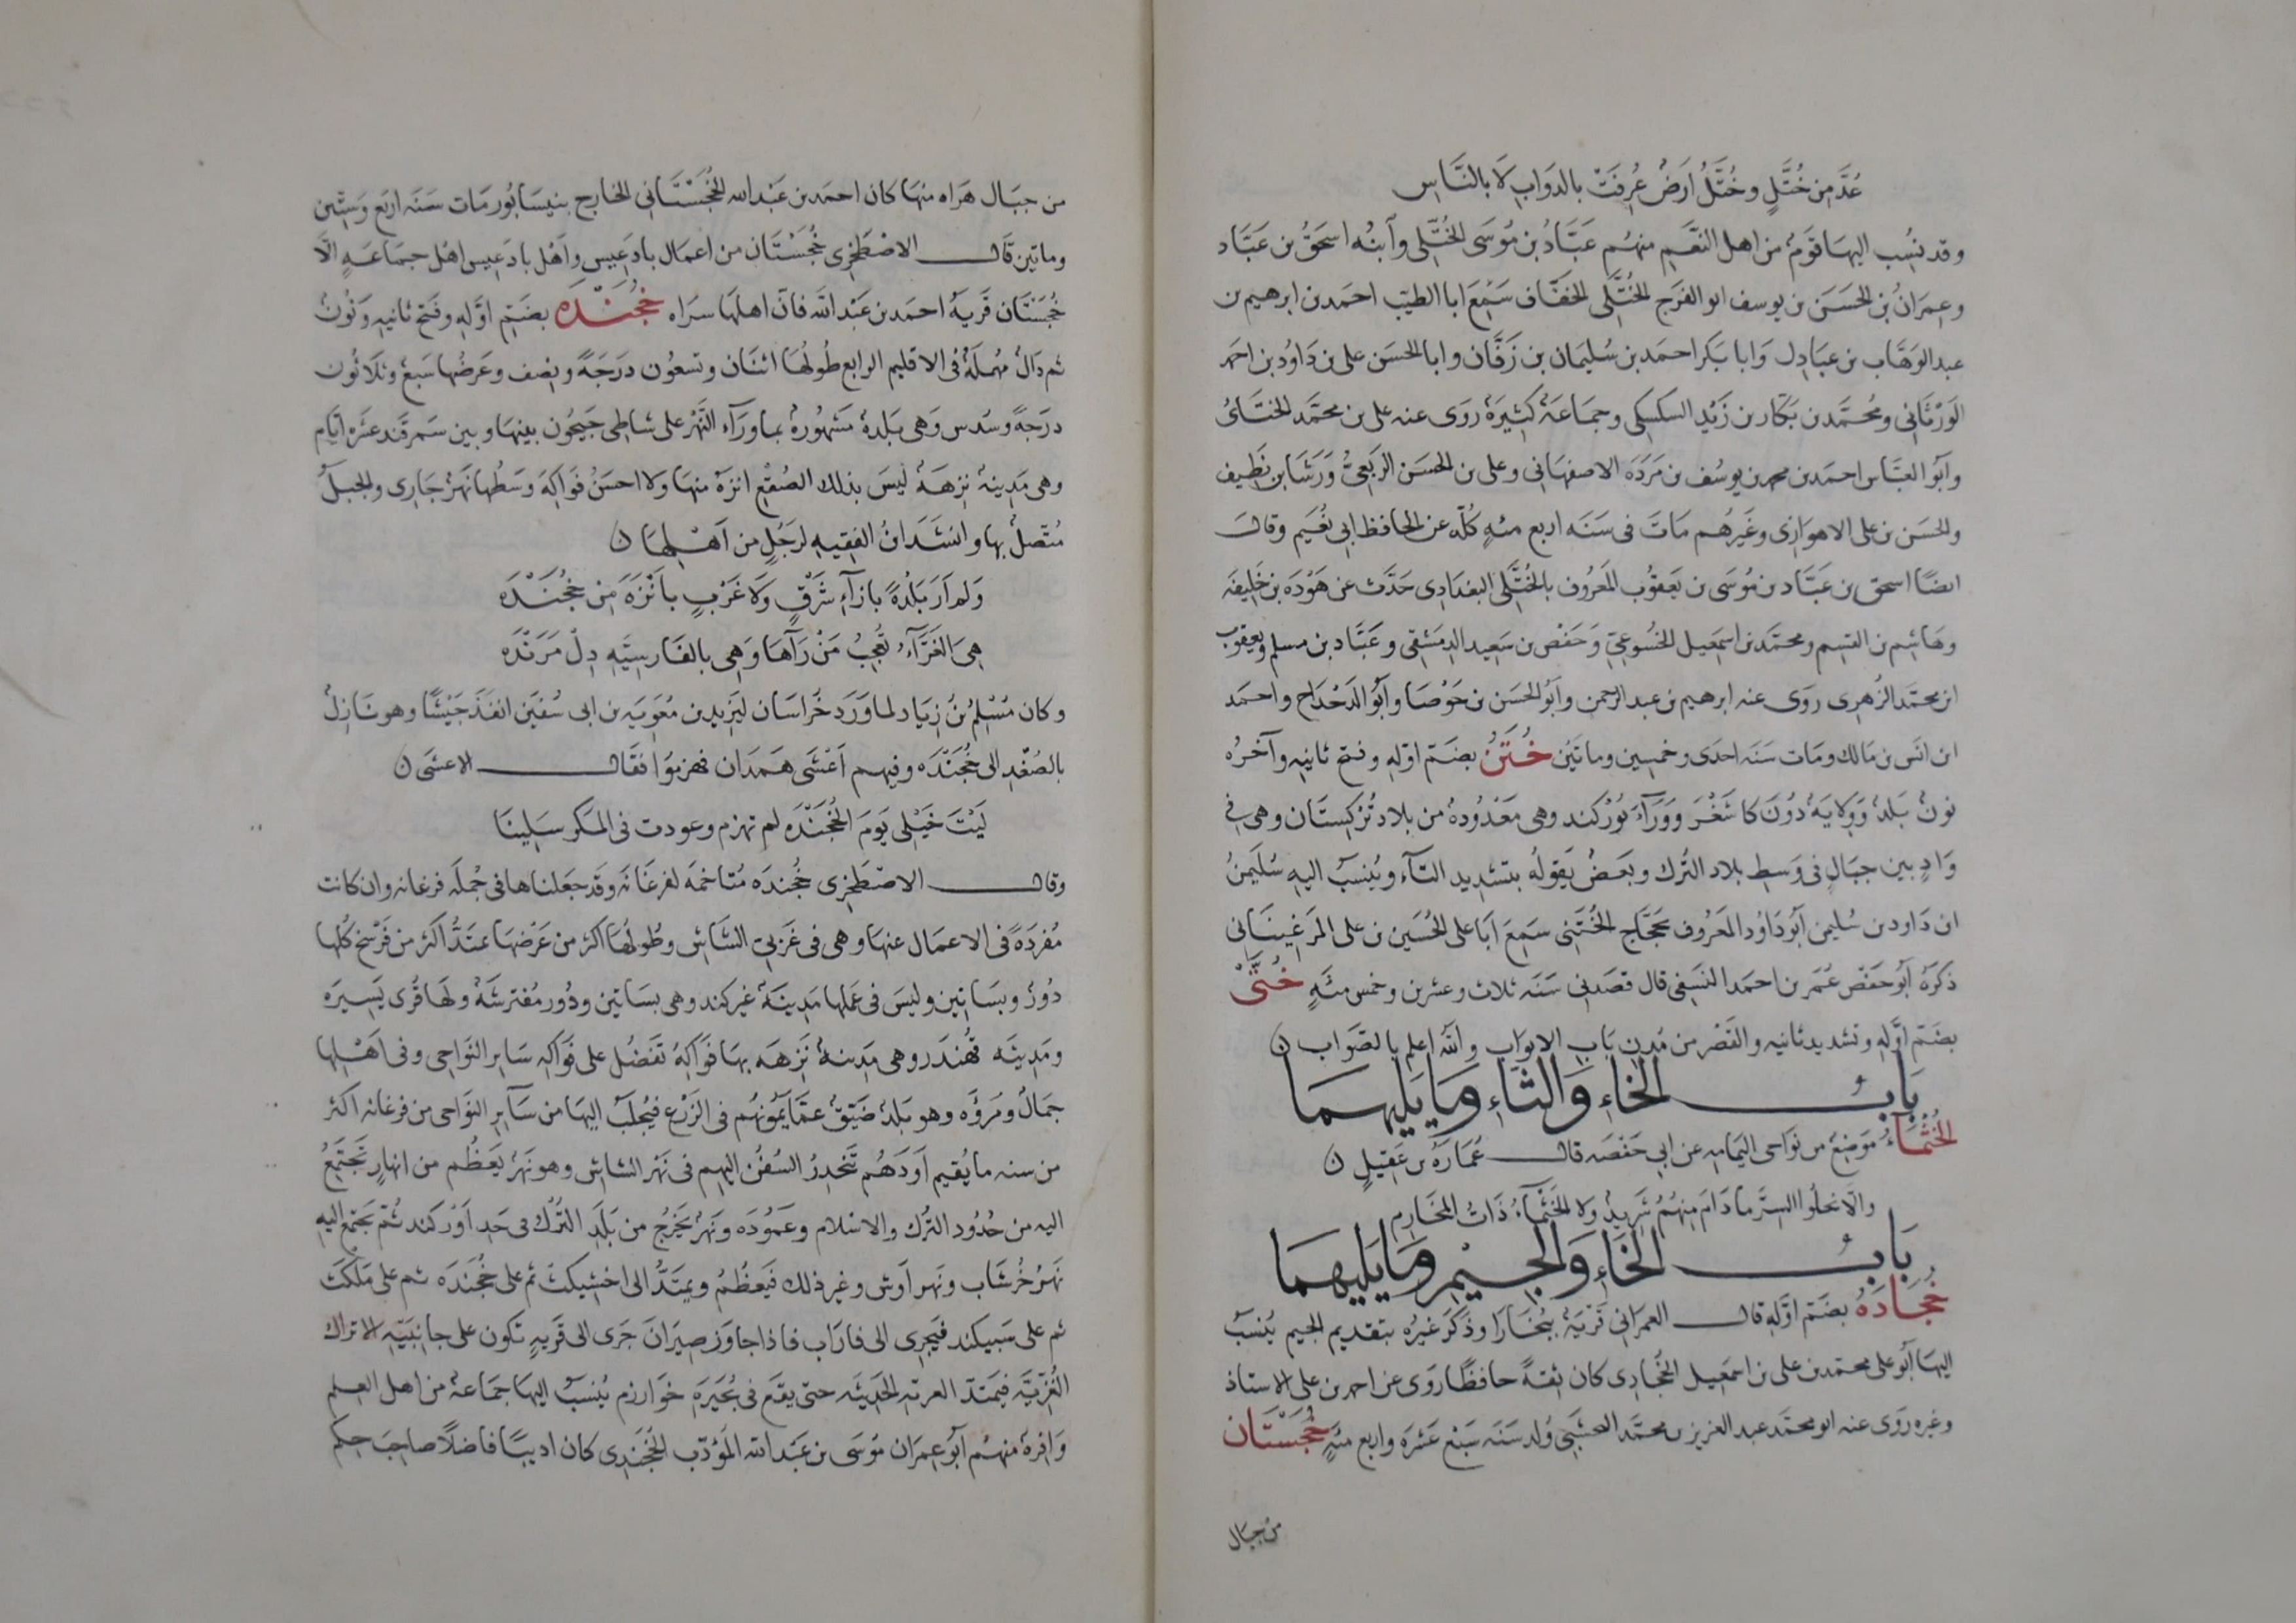 عُدَّ مِن خُتَّلٍ وخُتَّلُ ارَضٌ عُرِفَتْ بالدوَابِ لَا بالنَّاسِ
وقد نِسُب اليهَا قوَمٌ من اهل النعَم منهُم عَبَّادُ بن مُوُسَى الخُتَّلى وآبنُه اسحَقُ بن عَبَّاد
وعِمَرانُ بن الحَسَن بن يوسف ابو الفرَج الخُتَّلى الخفَّاف سَمِعَ ابا الطيّب احمَد بن ابرهيم بن
عبد الوَهَّاب بن عبَادِل وَابا بَكر احمَد بن سُليمَان بن زَبَّان وابا الحسَن على بن دَاوُد بن احمَد
الوَرْثَانى ومُحمَّد بن بَكَّار بن زَيْد السكسِكى وجمَاعَةٌ كَثِيرَةٌ روَى عنه على بن محمَّد الحنَّائ
وآبوُ العبَّاس احمَد بن محمد بن يوسُف بن مَردَه الاصفهَانى وعلى بن الحسَن الربَعىُّ وَرَشَا بن نَظِيف
والحسَن بن على الاهوَازى وغَيرهُم مَاتَ فى سَنَه اربع مئهٍ كُلّه عن الحافظ ابى نُعَيم وقالَ
ايضًا اسحق بن عَبَّاد بن مُوسَى بن يَعقوُب المعَروُف بالخُتَّلى البغدَادى حَدَّث عن هَوْدَه بن خَليِفَه
وهَاشِم بن القسِم ومحمَّد بن اسمَعيل الخُسُوعىّ وَحَفْص بن سَعِيد الدِمشقى وعَبَّاد بن مسلم ويعقوُب
ابن محمَّد الزُهرِى روَى عنه ابرهيم بن عبد الرحمن وآبوُ الحسَن بن جَوْصَا وآبوُ الدَحْدَاح واحمَد
ابن انَس بن مَالك ومَات سَنَه احدَى وخمسِين ومَاتيَن خُتَنُ بضَمّ اوّلهِ وفتح ثانيهِ وآخرُه
نونٌ بَلَدٌ وَوِلَايَةٌ دُونَ كاشَغْرَ وَوَرَآءَ يوُزكند وهى مَعْدُودَةٌ من بلَاد تُرْكِستَان وهى فِي
وَادٍ بين جبَالٍ فى وَسطِ بلاد التُرك وبَعَضٌ يَقوُلُه بتشديد التآء ويُنسَبُ اليه سُلَيمنُ
ابن دَاود بن سُليمن آبوُ دَاوُد المعَروُف بحَجَّاج الخُتَنِى سَمِعَ ابَا على الحُسَين بن على المَرغينَانى
ذكَرَهُ آبوُ حفَصْ عُمَر بن احمَد النَسَفى قال قصَدَنى سَنَه ثلاث وعشرين وخمس مئهٍ خُتَّى
بضَمّ اوَّلهِ وتشديد ثانيه والقَصْر من مُدن بَاب الابوَاب والله اعلم بالصَوَاب
بَابُ الخَاءِ وَالثَاءِ وَمَا يَليهمَا
الخُثمَاءُ مَوضِعٌ من نوَاحى اليمَامه عن ابى حَفْصَه قالَ عُمَارَهُ بن عَقيِلٍ
والَا تحلوُا السِترَ مَا دَامَ مِنهُمُ شَرِيدٌ ولا الخَثمآءُ ذَاتُ المخَارم
بَابُ الخَاءِ وَالجِيمِ وَمَا يَليهِمَا
خُجَادَهُ بضَمّ اوَّلهِ قالَ العمرَانى قَريَةٌ ببُخَارَا وذَكَر غَيرُه بتقديم الجيم يُنسَبُ
اليهَا آبوُ على محمَّد بن على بن اسمَعِيل الخُجَادى كان ثِقةً حَافظًا روَى عن احمد بن على الاستاذ
وغيره روَى عنه ابو محمَّد عبد العزيز بن محمَّد النخشَبى وُلد سَنَه سَبْع عَشرَه واربع مئهٍ خُجَسْتَان
من جبال
من جبَال هَرَاه منهَا كان احمَد بن عَبْد الله الخُجَسْتَانى الخارج بنيسَابُور مَات سَنَه اربَع وَستّين
وماتين قَالَ الاصْطَخرِى خُجَسْتَان من اعمَال بادَغيس واَهْل بادَغيس اهْل جمَاعَهٍ الّا
خُجَسْتَان قَريَةُ احمَد بن عَبْد الله فانَّ اهلهَا سرَاه خُجَنْدَه بضَمّ اوَّلهِ وفَتح ثانيهِ ونُونٌ
ثم دَالٌ مُهملَةٌ فى الاقليم الرابع طُولُهَا اثنَان وتسعُون درَجَةً ونِصف وعَرضُهَا سَبعٌ وثلاثُون
درَجةً وسُدس وَهى بَلدةٌ مَشهُورةٌ بمَاورَآء النَهْر على شاطى جَيحُون بينهَا وبين سَمرقَند عَشَره ايَّام
وهى مَدِينةٌ نزِهَةٌ لَيسَ بذلك الصُقْع انزَهُ منهَا ولا احسَنُ فوَاكِهَ وَسَطُها نَهرٌ جَارى والجَبلُ
مُتّصلٌ بها وانشَدَ ابنُ الفقيه لرَجُلٍ من اَهْلهَا
وَلم اَرَ بَلْدَةً بازآءِ شَرْقٍ وَلَا غَرْبٍ بانْزَهَ مِن خجُنَدْهَ
هِىَ الغَرَّآءُ تُعْجِبُ مَنْ رَآهَا وَهِى بالفَارسِيَّهِ دِلْ مَرَنْدَه
وكان مُسْلِمُ بنُ زِيَاد لما وَرَدَ خُرَاسَان ليَزِيد بن مُعَويَه بن ابى سُفيَن انفَذَ جَيْشًا وهو نَازِلٌ
بالصُغْدِ الى خُجَنْدَه وفيهم اَعْشَى هَمَدان فهزِمُوا فقَالَ الاعشَى
لَيْتَ خَيْلى يَومَ الخُجَنْدَه لم تهزم وعودت فى المكر سَلِينَا
وقالَ الاصْطَخرِى خُجَندَه مُتَاخمَه لفرغَانَه وقَد جعَلنَاهَا فى جُملَه فرغانه وان كانت
مُفرَدَةً فى الاعمَال عنهَا وهى فى غَربىّ الشَاش وطُولُهَا اكثر من عَرْضهَا يمتَدُّ اكثر من فَرْسخ كُلّها
دُورٌ وبسَاتين وليسَ فى عَملهَا مَدِينَةٌ غير كند وهى بسَاتين ودُور مُفترشَةٌ ولَهَا قُرى يَسِيرَه
ومَدِينَه قُهندَر وهى مَدِينةٌ نَزِهَه بهَا فوَاكِهُ تَفضُل على فوَاكِه سَاير النوَاحى وفى اهْلهَا
جمَالٌ ومرُوَّه وهو بَلدٌ ضَيّقٌ عمَّا يَموُنُهُم فى الزَرْع فيُجلَبُ اليهَا من سَآيرِ النوَاحى من فرغانه اكثر
من سنه ما يُقيم اَوَدَهُم تَنْحَدِرُ السُفُن اليهم فى نَهْر الشَاش وهو نَهرٌ يعَظُم من انهارٍ تجَتمِعُ
اليه من حُدُود التُرك والاسلام وعَمُودَه ونَهرٌ يَخرُجُ من بَلَدِ التُرْك فى حَدِ اَوْزكند ثمَّ يَجتمع اليه
نَهرُ خُرشَاب ونَهر آوش وغير ذلك فَيعظُمُ ويَمتَدُّ الى اخشيكث ثم على خُجَندَه ثم على مَلَكت
ثم على سَبيكند فيَجرِى الى فارَاب فاذا جاوَز صِيرَانَ جَرَى الى قَريهٍ تكون على جانبَيهِ الاتراك
الغُزّيَّه فيمَتد العرىه الحديثه حتى يقع فى بحُيَرَهِ خوَارزم يُنسَبُ اليهَا جمَاعةٌ من اهل العِلم
وَافِرةٌ منهُم آبوُ عِمرَان مُوسَى بن عَبَد الله المُؤدّب الخُجَندِى كان اديبًا فاضلًا صاحِبَ حكم